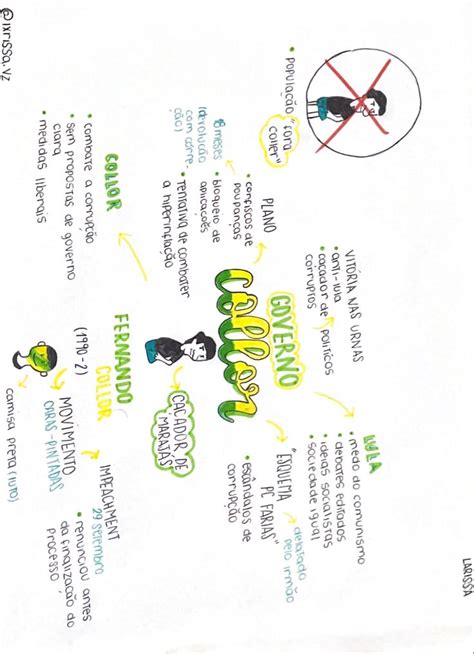 @ixrissa.vz
LARISSA
GOVERNO
Collor
CAÇADOR DE
MARAJÁS
FERNANDO
COLLOR
(1990-2)
VITÓRIA NAS URNAS
• anti-lula
• caçador de políticos
corruptos
LULA
• medo do comunismo
• debates editados
• ideias socialistas
• sociedade igual
"ESQUEMA
PC FARIAS"
delatado
pelo irmão
• escândalos de
corrupção
IMPEACHMENT
29 setembro
• renunciou antes
da finalização do
processo
MOVIMENTO
CARAS-PINTADAS
camisa preta (luto)
COLLOR
• combate a corrupção
• sem propostas de governo
clara
• medidas liberais
PLANO
• confiscos de
poupanças
18 meses
(devolução
com corre-
ção)
• bloqueio de
aplicações
• tentativa de combater
a hiperinflação
• População "fora
collor"